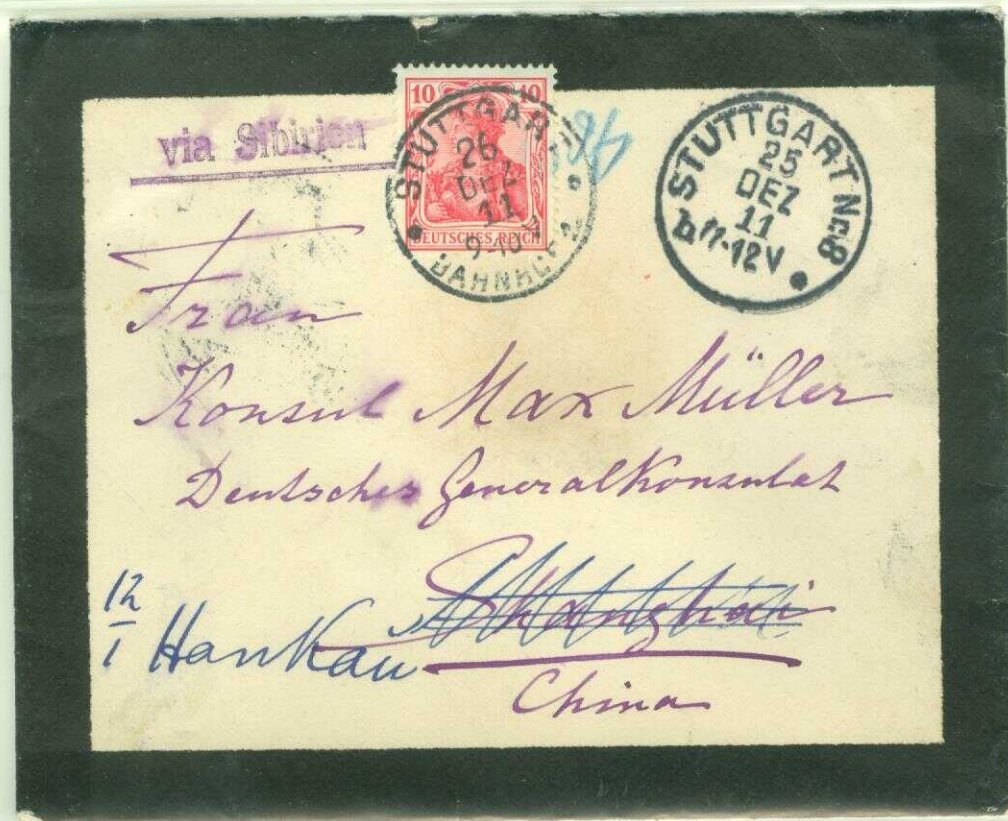 via Sibirien
10 10
DEUTSCHES REICH
STUTTGART
26
DEZ
11
BAHNHOF 2
STUTTGART Nr.8
25
DEZ
11
b 11-12V
Frau
Konsul Max Müller
Deutsches Generalkonsulat
Shanghai
12/I Hankau
China